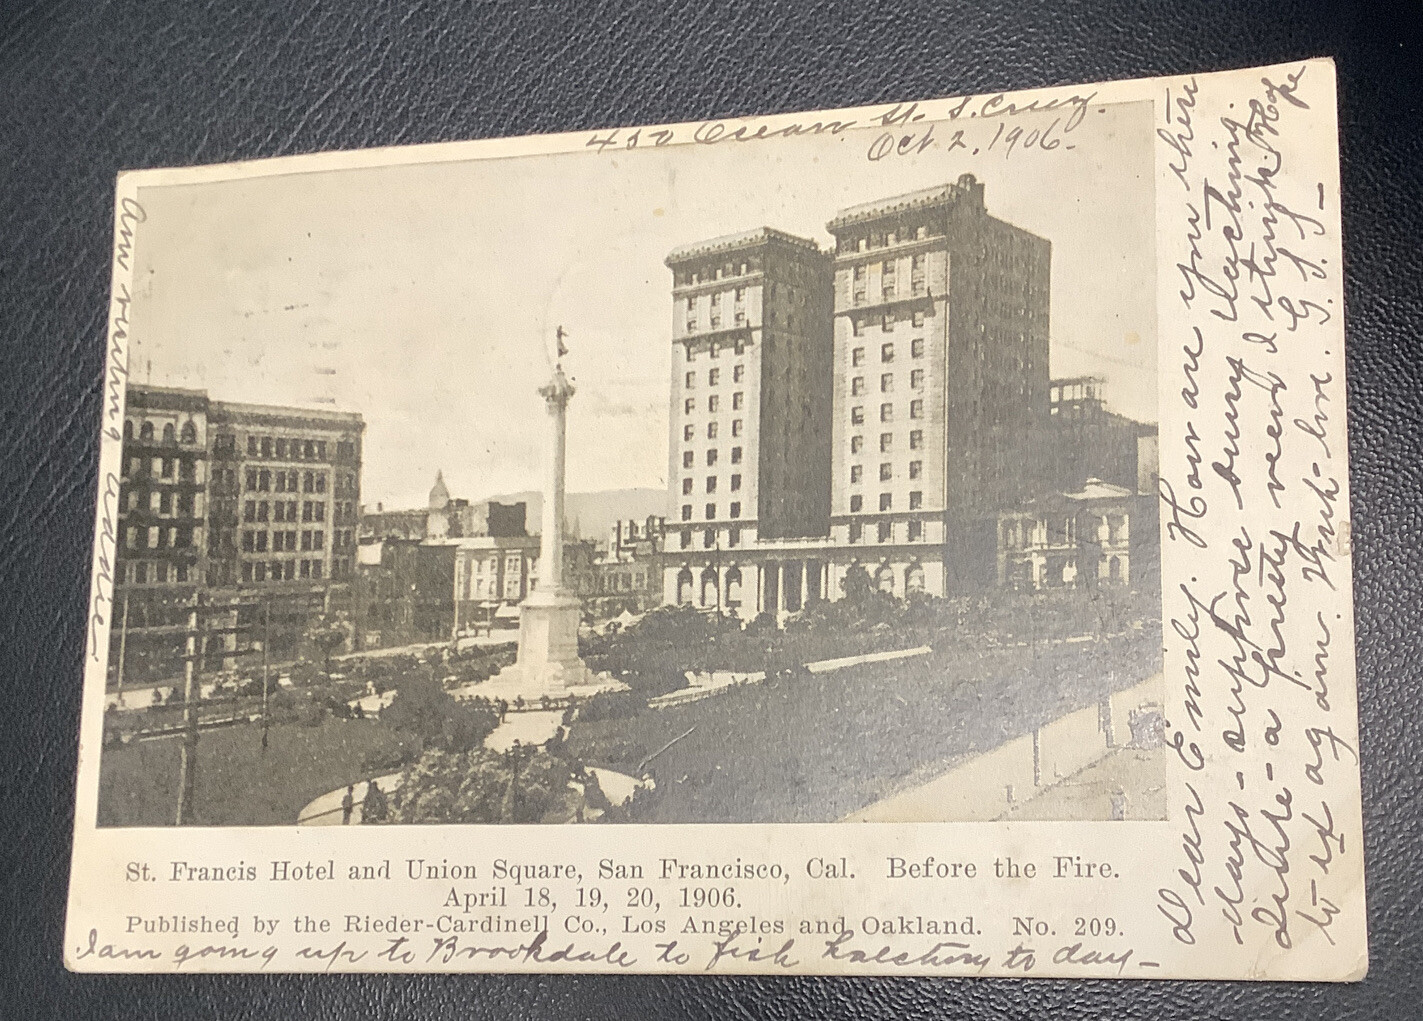 450 Ocean St. S. Cruz.
Oct 2, 1906.
Dear Emily. How are you these
days - suppose busy teaching.
quite - a pretty view I think. Hope
to ex again. With love. G. S. S -
am visiting
St. Francis Hotel and Union Square, San Francisco, Cal. Before the Fire.
April 18, 19, 20, 1906.
Published by the Rieder-Cardinell Co., Los Angeles and Oakland. No. 209.
I am going up to Brookdale to fish hatchery to day -